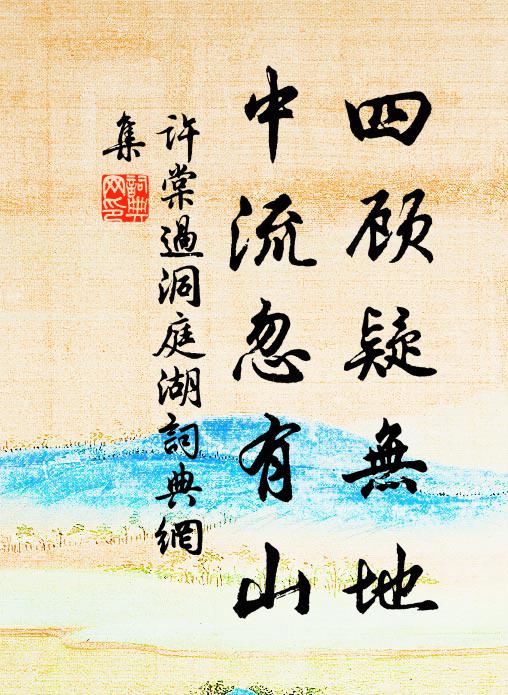 四顾疑無地
中流忽有山
许棠過洞庭湖詞典網
集
詞典
网印